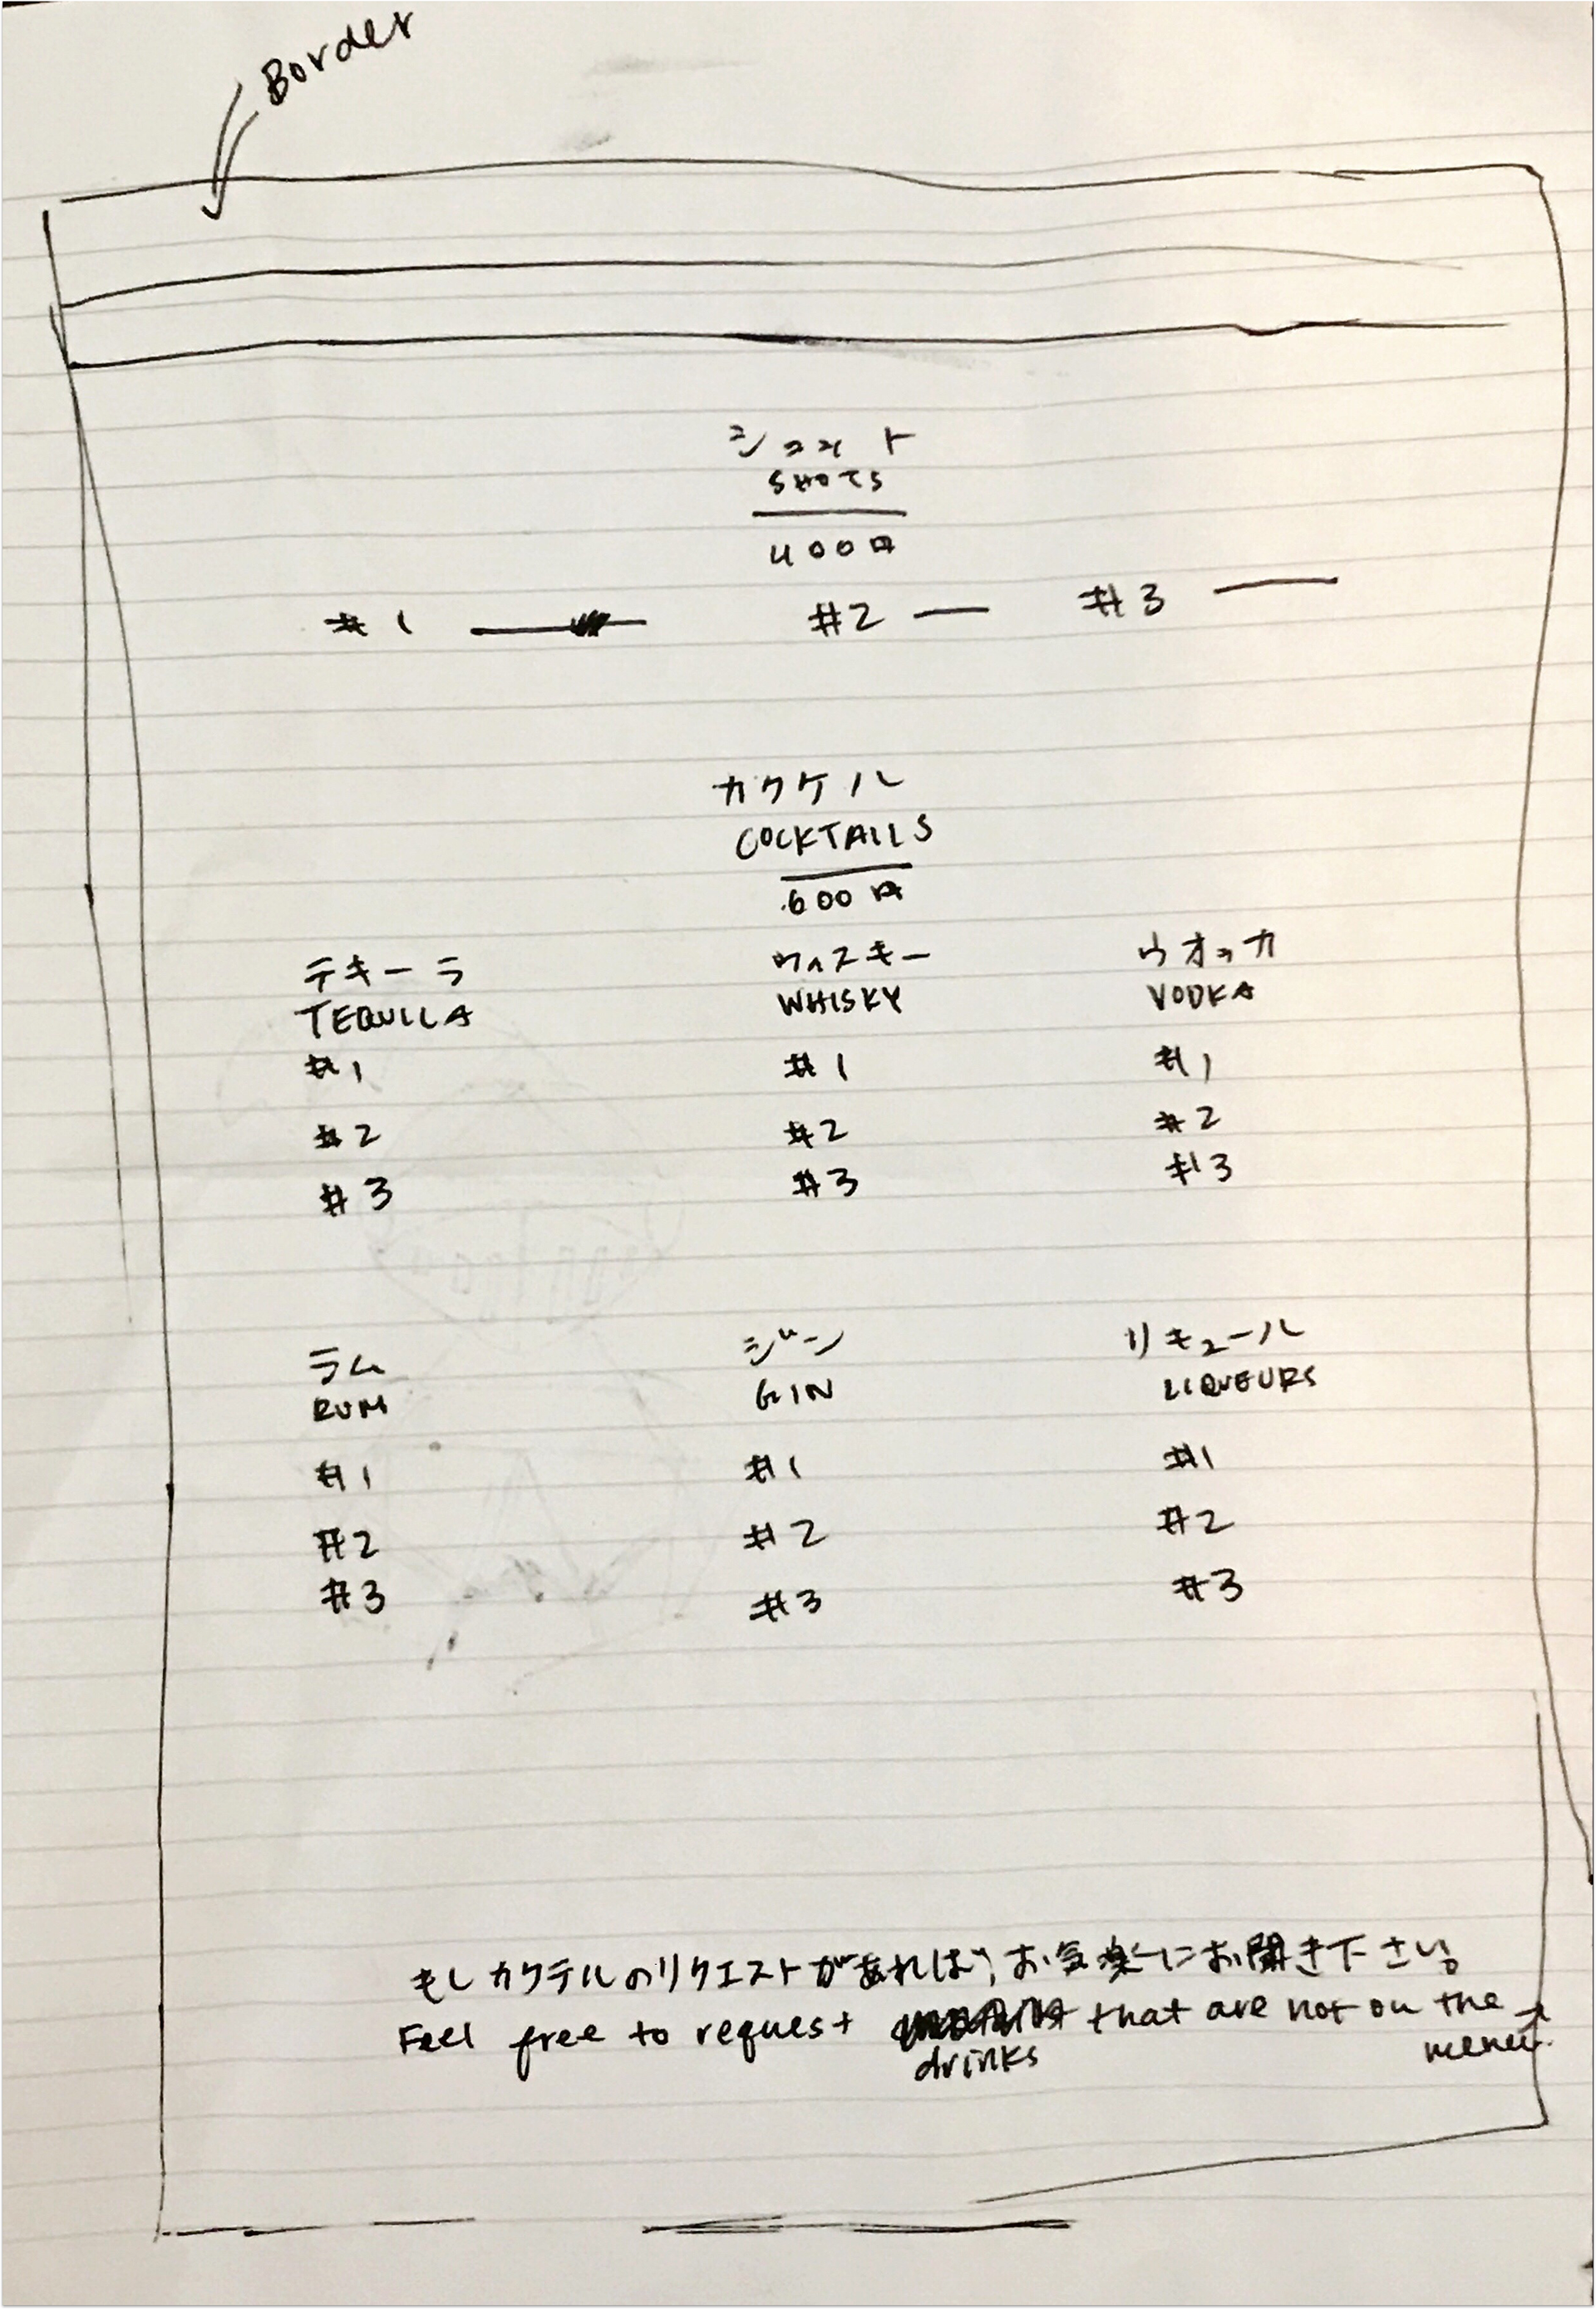 Border
ショット
SHOTS
400円
#1 #2 #3
カクテル
COCKTAILS
600円
テキーラ ウィスキー ウオッカ
TEQUILA WHISKY VODKA
#1 #1 #1
#2 #2 #2
#3 #3 #3
ラム ジン リキュール
RUM GIN LIQUEURS
#1 #1 #1
#2 #2 #2
#3 #3 #3
もしカクテルのリクエストがあれば、お気楽にお聞き下さい。
Feel free to request drinks that are not on the
menu.